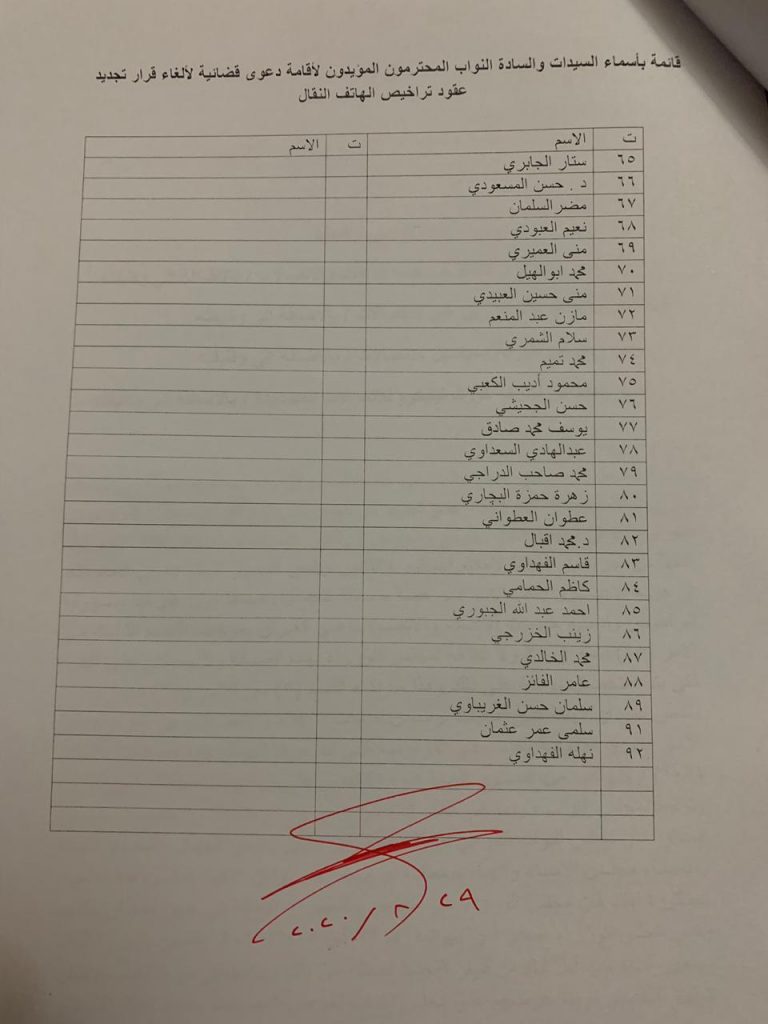 قائمة بأسماء السيدات والسادة النواب المحترمون المؤيدون لأقامة دعوى قضائية لألغاء قرار تجديد
عقود تراخيص الهاتف النقال
ت الاسم ت الاسم
٦٥ ستار الجابري
٦٦ د . حسن المسعودي
٦٧ مضر السلمان
٦٨ نعيم العبودي
٦٩ منى العميري
٧٠ محمد ابوالهيل
٧١ منى حسين العبيدي
٧٢ مازن عبد المنعم
٧٣ سلام الشمري
٧٤ محمد تميم
٧٥ محمود أديب الكعبي
٧٦ حسن الجحيشي
٧٧ يوسف محمد صادق
٧٨ عبدالهادي السعداوي
٧٩ محمد صاحب الدراجي
٨٠ زهرة حمزة البچاري
٨١ عطوان العطواني
٨٢ د.محمد اقبال
٨٣ قاسم الفهداوي
٨٤ كاظم الحمامي
٨٥ احمد عبد الله الجبوري
٨٦ زينب الخزرجي
٨٧ محمد الخالدي
٨٨ عامر الفائز
٨٩ سلمان حسن الغريباوي
٩١ سلمى عمر عثمان
٩٢ نهله الفهداوي